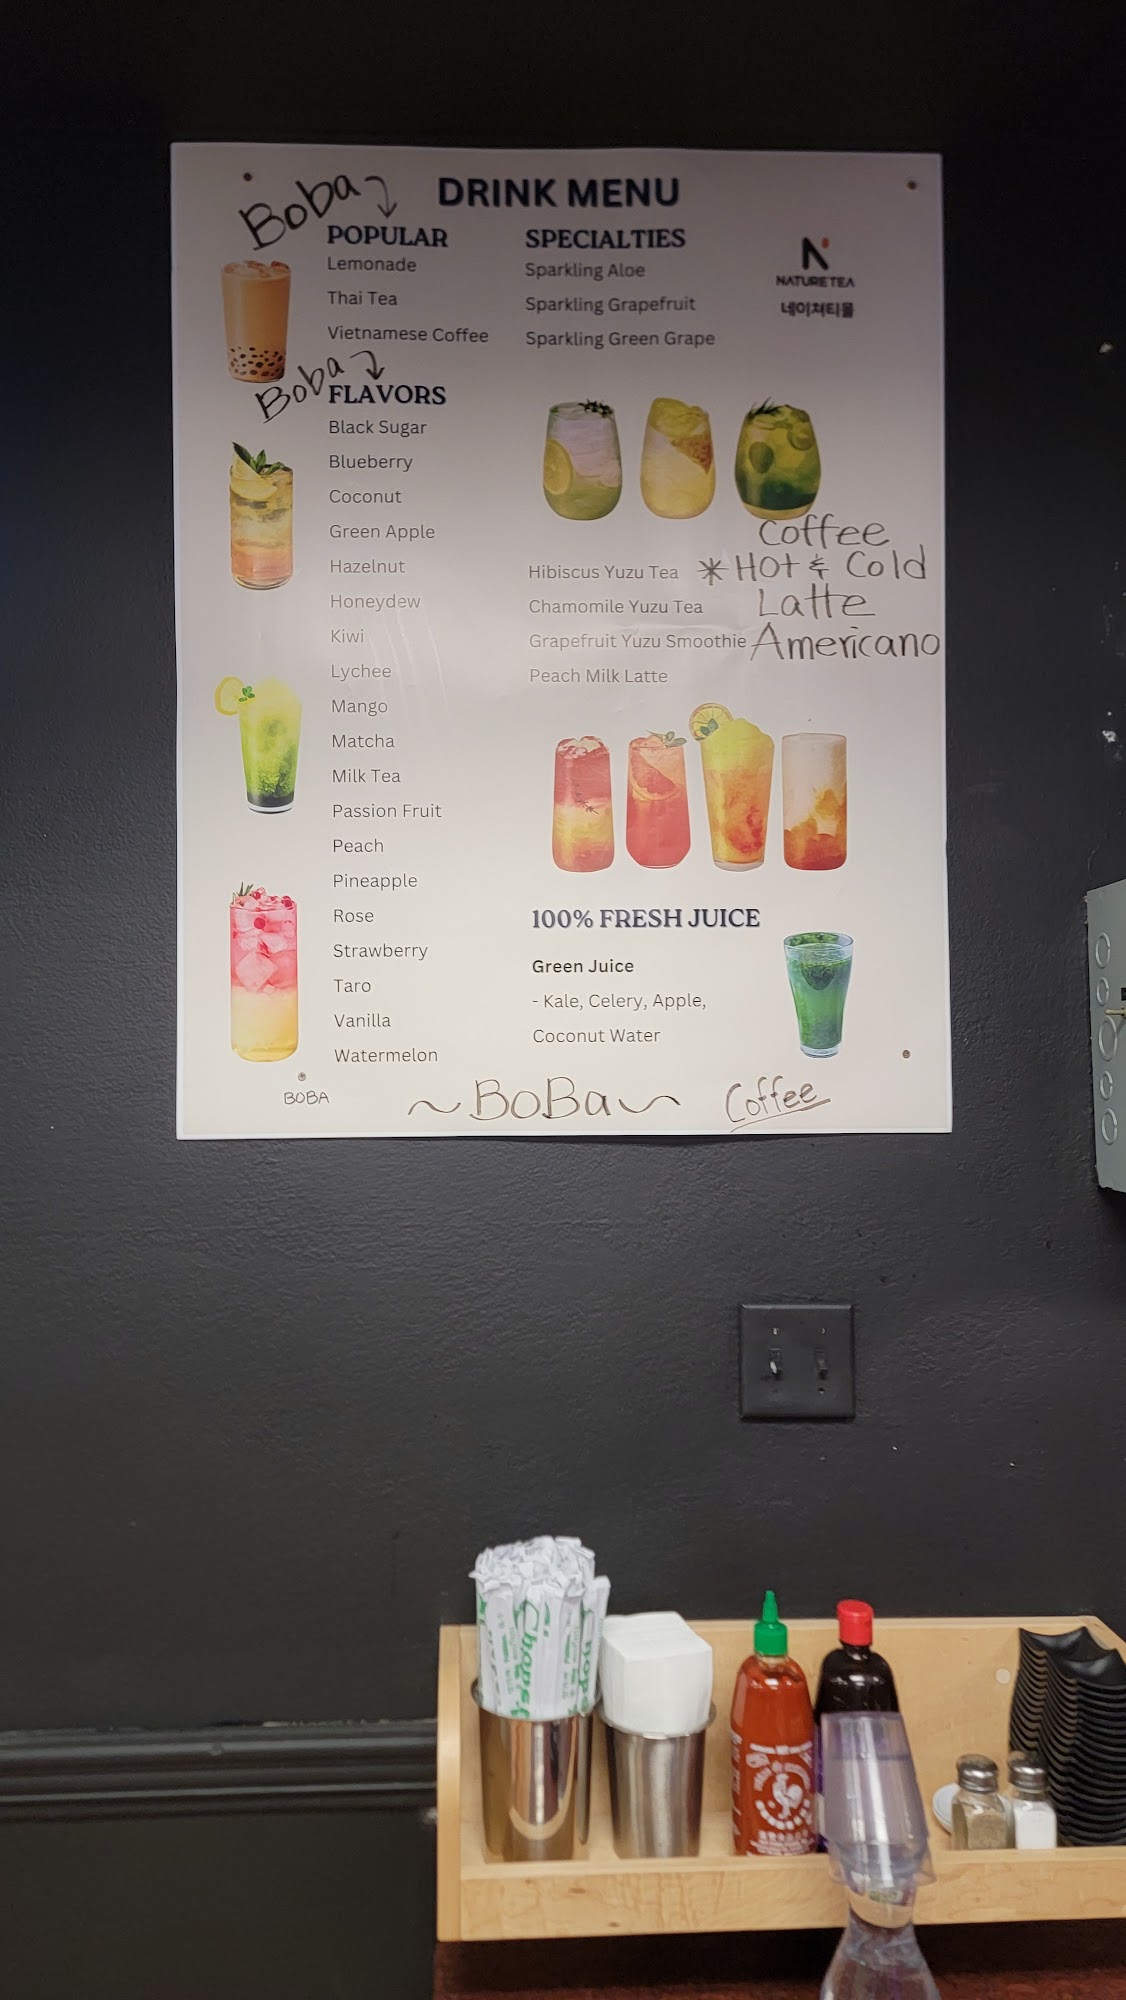 DRINK MENU
Boba
POPULAR
Lemonade
Thai Tea
Vietnamese Coffee
Boba
FLAVORS
Black Sugar
Blueberry
Coconut
Green Apple
Hazelnut
Honeydew
Kiwi
Lychee
Mango
Matcha
Milk Tea
Passion Fruit
Peach
Pineapple
Rose
Strawberry
Taro
Vanilla
Watermelon
BOBA
SPECIALTIES
Sparkling Aloe
Sparkling Grapefruit
Sparkling Green Grape
N
NATURETEA
네이쳐티몰
Coffee
* Hot & Cold
Latte
Americano
Hibiscus Yuzu Tea
Chamomile Yuzu Tea
Grapefruit Yuzu Smoothie
Peach Milk Latte
100% FRESH JUICE
Green Juice
- Kale, Celery, Apple,
Coconut Water
~BoBa~
Coffee